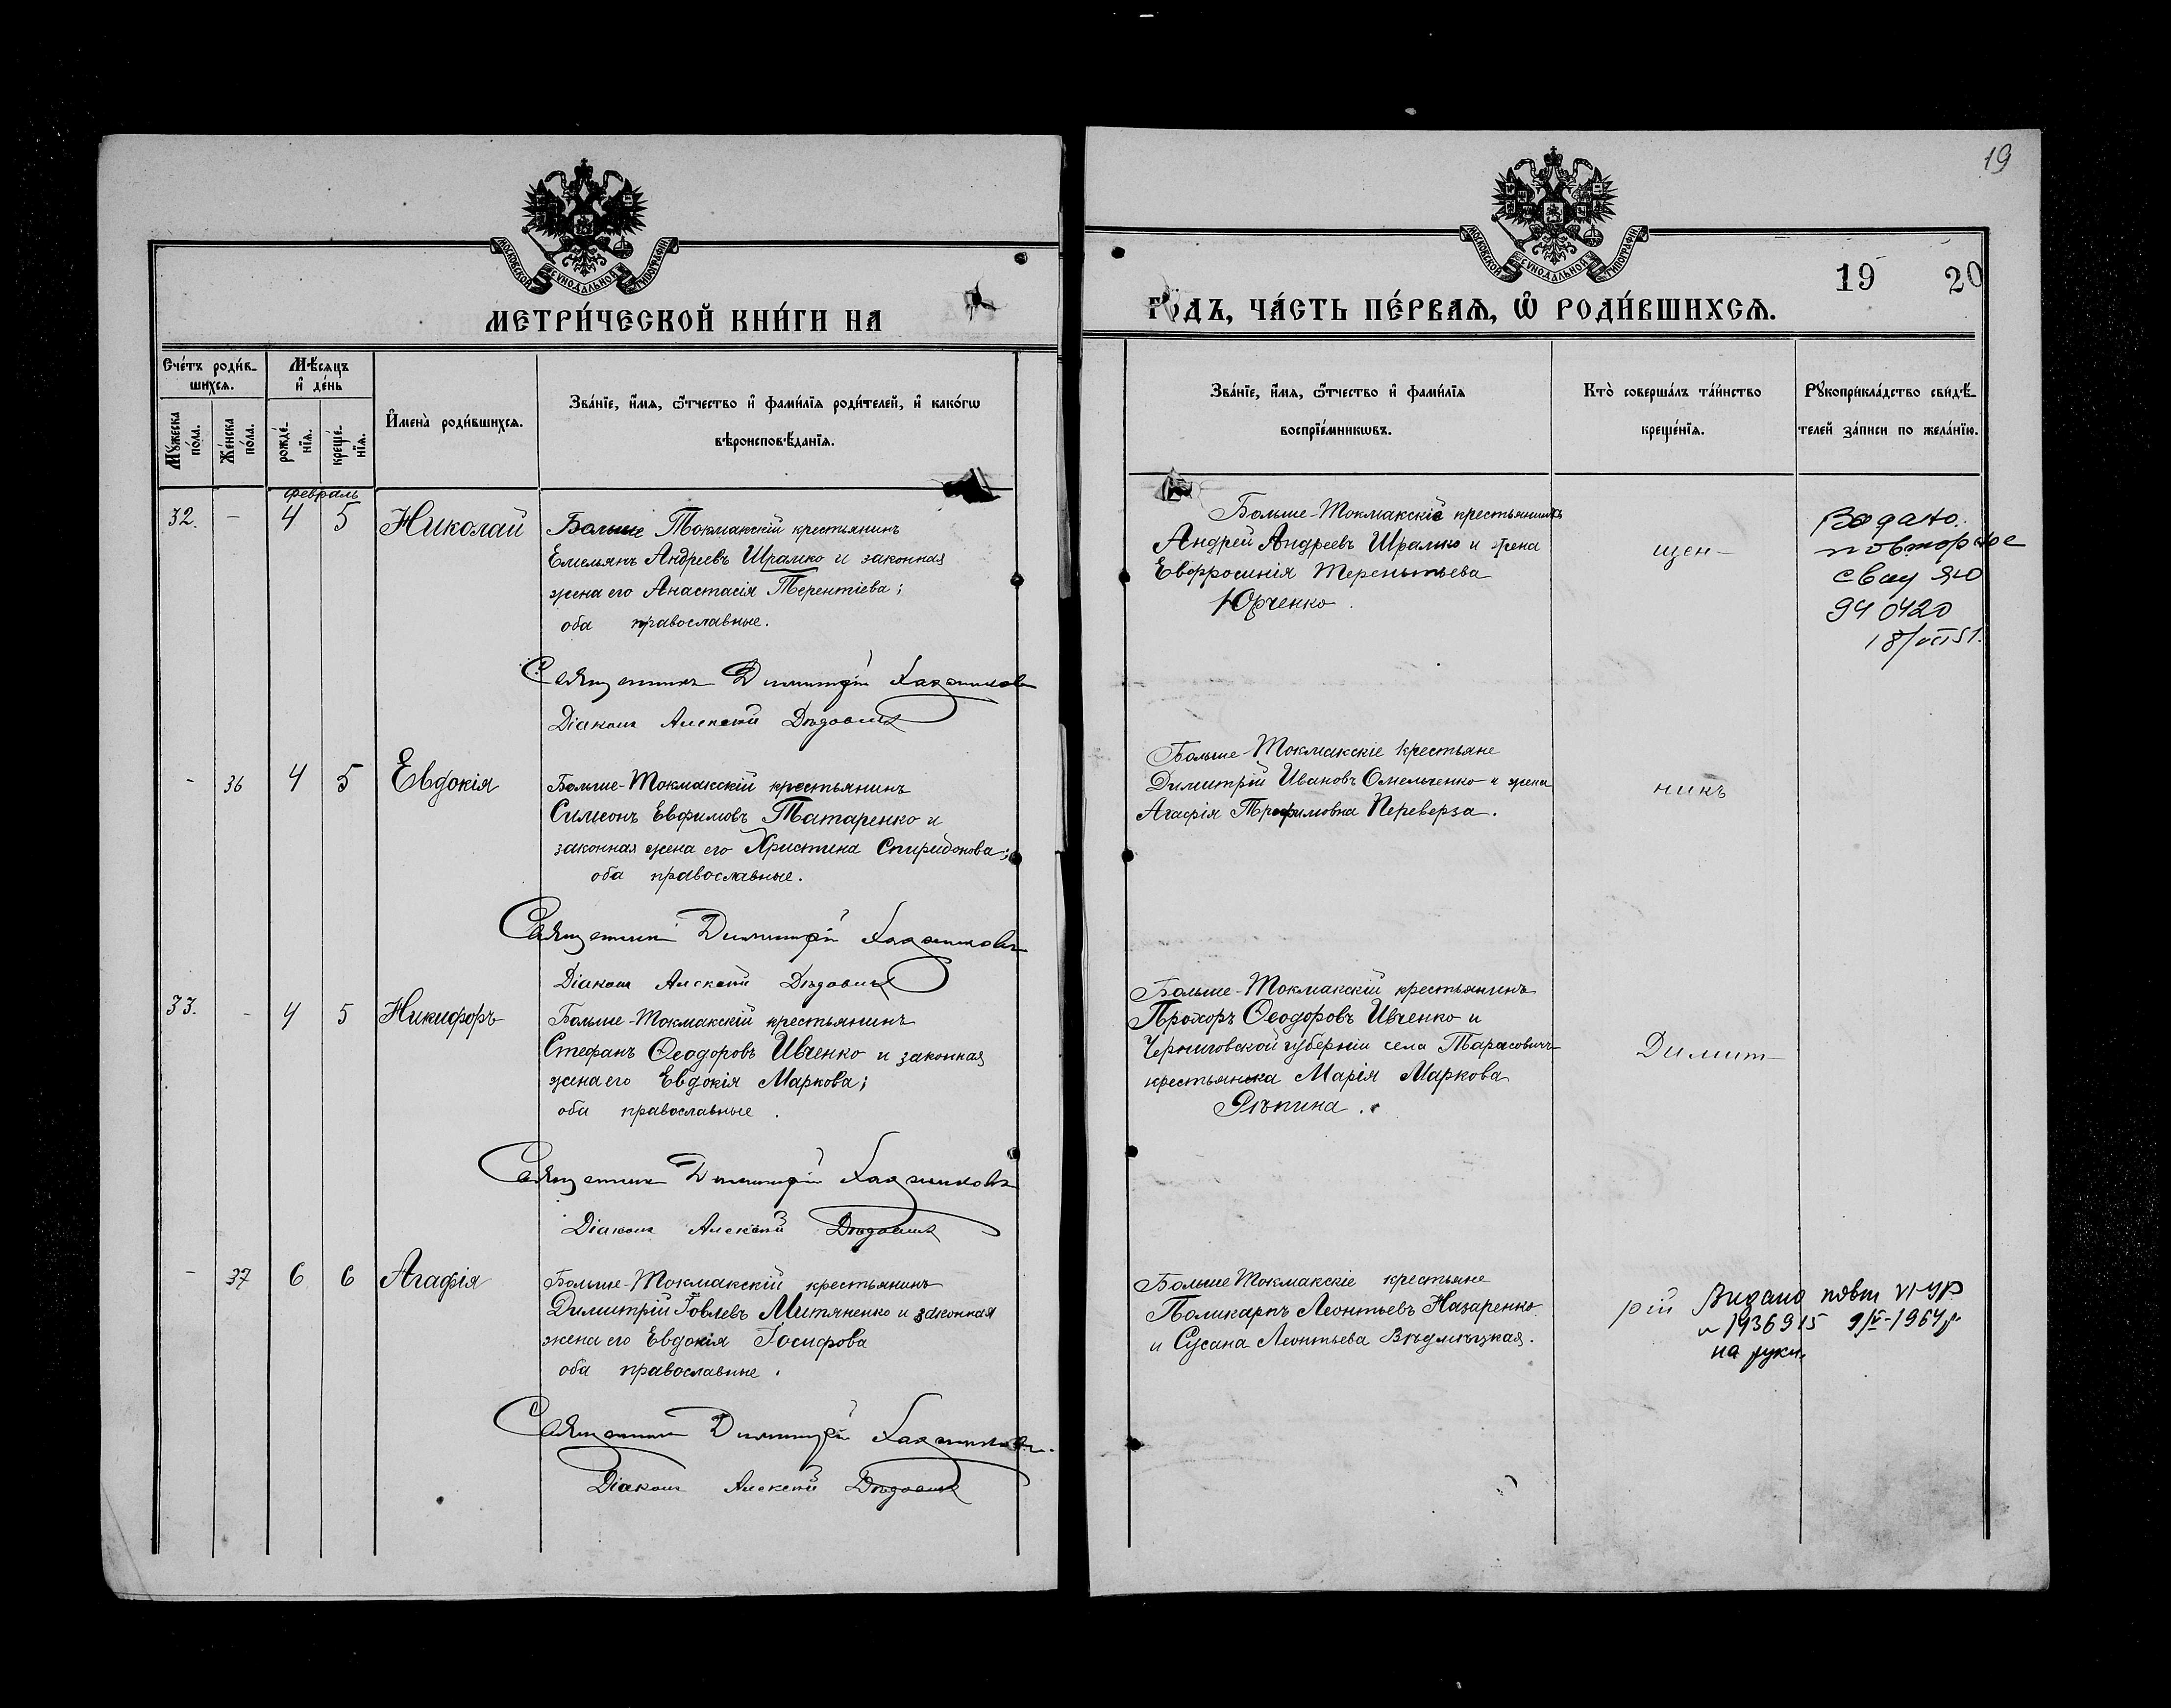 19
МОСКОВСКОЙ СѴНОДАЛЬНОЙ ТИПОГРАФІИ
МОСКОВСКОЙ СѴНОДАЛЬНОЙ ТИПОГРАФІИ
19 20
МЕТРИ́ЧЕСКОЙ КНИ́ГИ НА
ГО́ДЪ, ЧА́СТЬ ПЕ́РВАѦ, Ѽ РОДИ́ВШИХСѦ.
Сче́тъ роди́в-
шихсѧ.
Мѣ́сѧцъ
и҆ де́нь
Мꙋ́жеска
по́ла.
Же́нска
по́ла.
рожде́-
нїѧ.
креще́-
нїѧ.
И҆мена̀ роди́вшихсѧ.
Зва́нїе, и҆́мѧ, ѻ҆́тчество и҆ фами́лїѧ роди́телей, и҆ како́гѡ
вѣроисповѣ́данїѧ.
Зва́нїе, и҆́мѧ, ѻ҆́тчество и҆ фами́лїѧ
воспрїе́мникѡвъ.
Кто̀ соверша́лъ та́инство
креще́нїѧ.
Рꙋкоприкла́дство свидѣ́-
телей за́писи по жела́нїю.
февраль
32. - 4 5 Николай
Больше Токмакскій крестьянинъ
Емельянъ Андреевъ Шрамко и законная
жена его Анастасія Терентіева;
оба православные.
Священникъ Димитрій
Діаконъ Алексѣй
Больше-Токмакскіе крестьянинъ
Андрей Андреевъ Шрамко и жена
Евфросинія Терентьева
Юрченко.
щен-
повторное
940420
- 36 4 5 Евдокія
Больше-Токмакскій крестьянинъ
Симеонъ Евфимовъ Татаренко и
законная жена его Христина Спиридонова;
оба православные.
Священникъ Димитрій
Діаконъ Алексѣй
Больше-Токмакскіе крестьяне
Димитрій Ивановъ Омельченко и жена
Агафія Трофимовна Переверза.
никъ
33. - 4 5 Никифоръ
Больше-Токмакскій крестьянинъ
Стефанъ Ѳеодоровъ Ивченко и законная
жена его Евдокія Маркова;
оба православные.
Священникъ Димитрій
Діаконъ Алексѣй
Больше-Токмакскій крестьянинъ
Прохоръ Ѳеодоровъ Ивченко и
Черниговской губерніи села Тарасовичъ
крестьянка Марія Маркова
Рѣпина.
Димит-
- 37 6 6 Агафія
Больше-Токмакскій крестьянинъ
Димитрій Іовлевъ Митяненко и законная
жена его Евдокія Іосифова
оба православные.
Священникъ Димитрій
Діаконъ Алексѣй
Больше Токмакскіе крестьяне
Поликарпъ Леонтьевъ Назаренко
и Сусана Леонтьева Вѣдмѣцкая.
рій
Видано повт
1936915 9/V-1964р.
на руки.